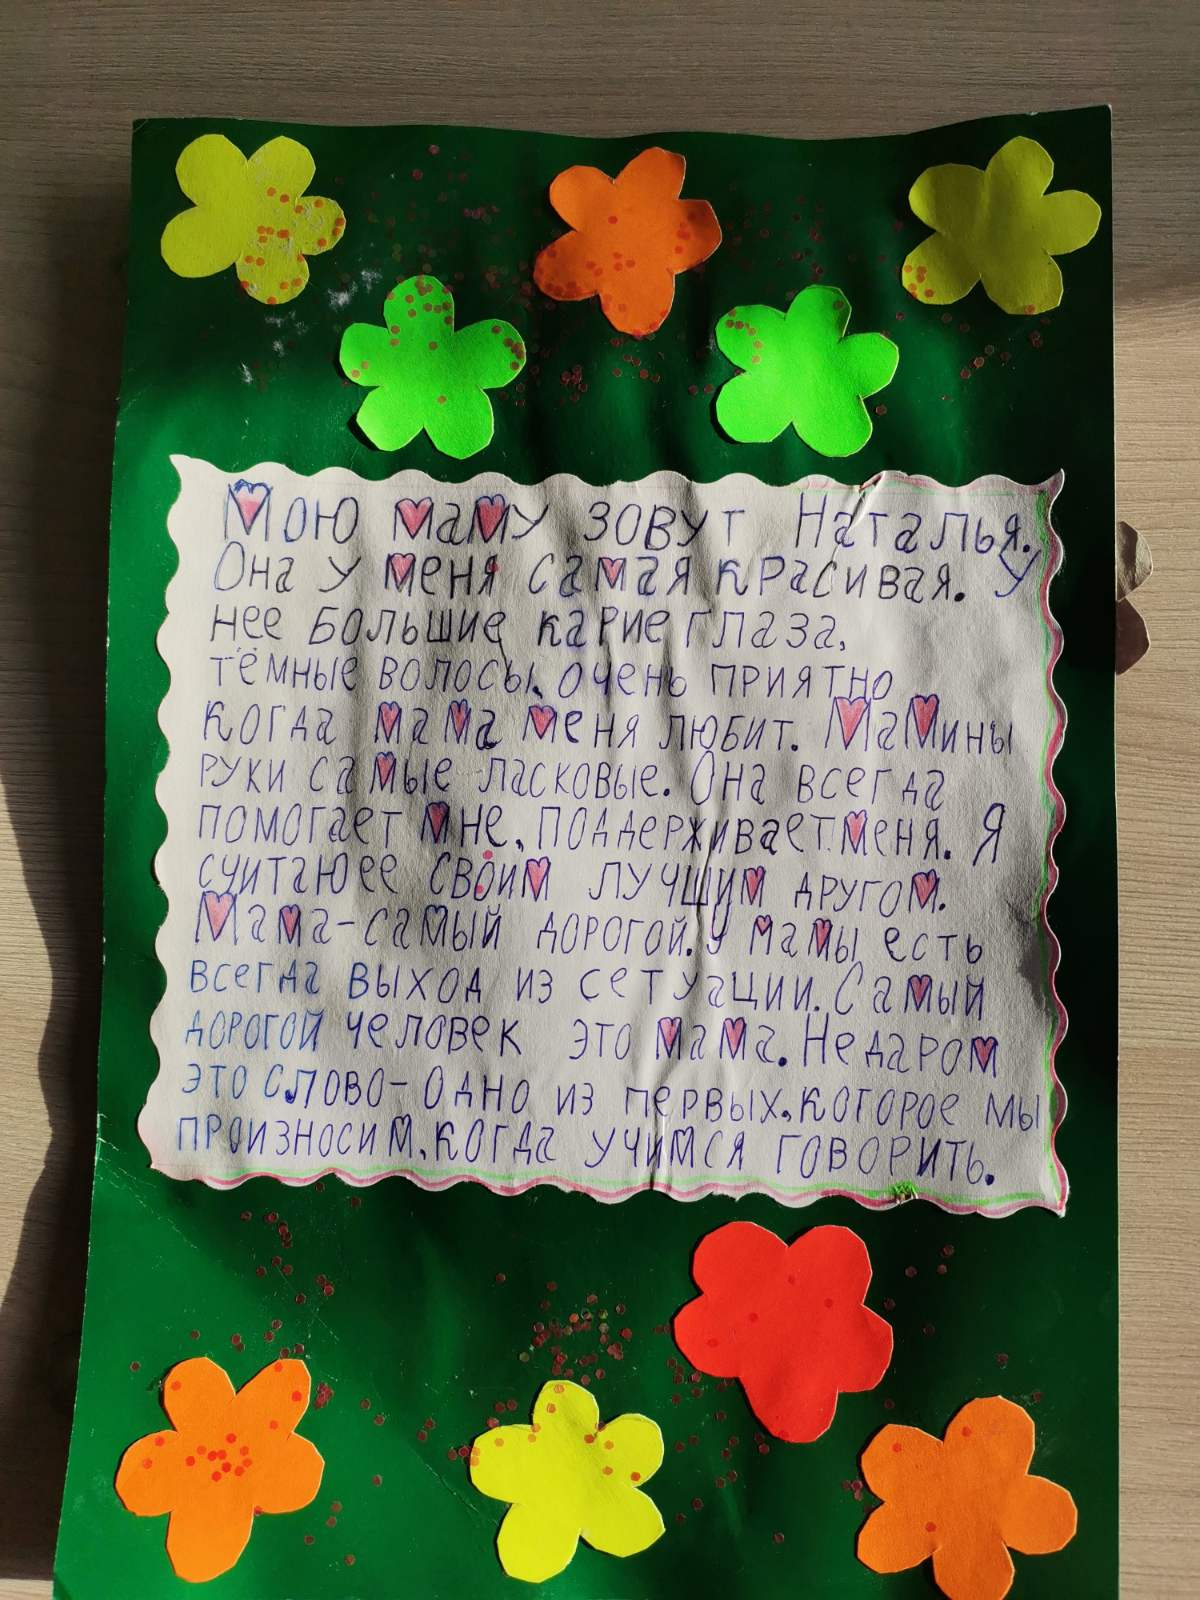 Мою маму зовут Наталья.
Она у меня самая красивая. У
нее большие карие глаза,
тёмные волосы. очень приятно
когда мама меня любит. Мамины
руки самые ласковые. Она всегда
помогает мне, поддерживает меня. Я
считаю ее своим лучшим другом.
Мама-самый дорогой. У мамы есть
всегда выход из сетуации. Самый
дорогой человек это мама. Недаром
это слово-одно из первых, которое мы
произносим, когда учимся говорить.